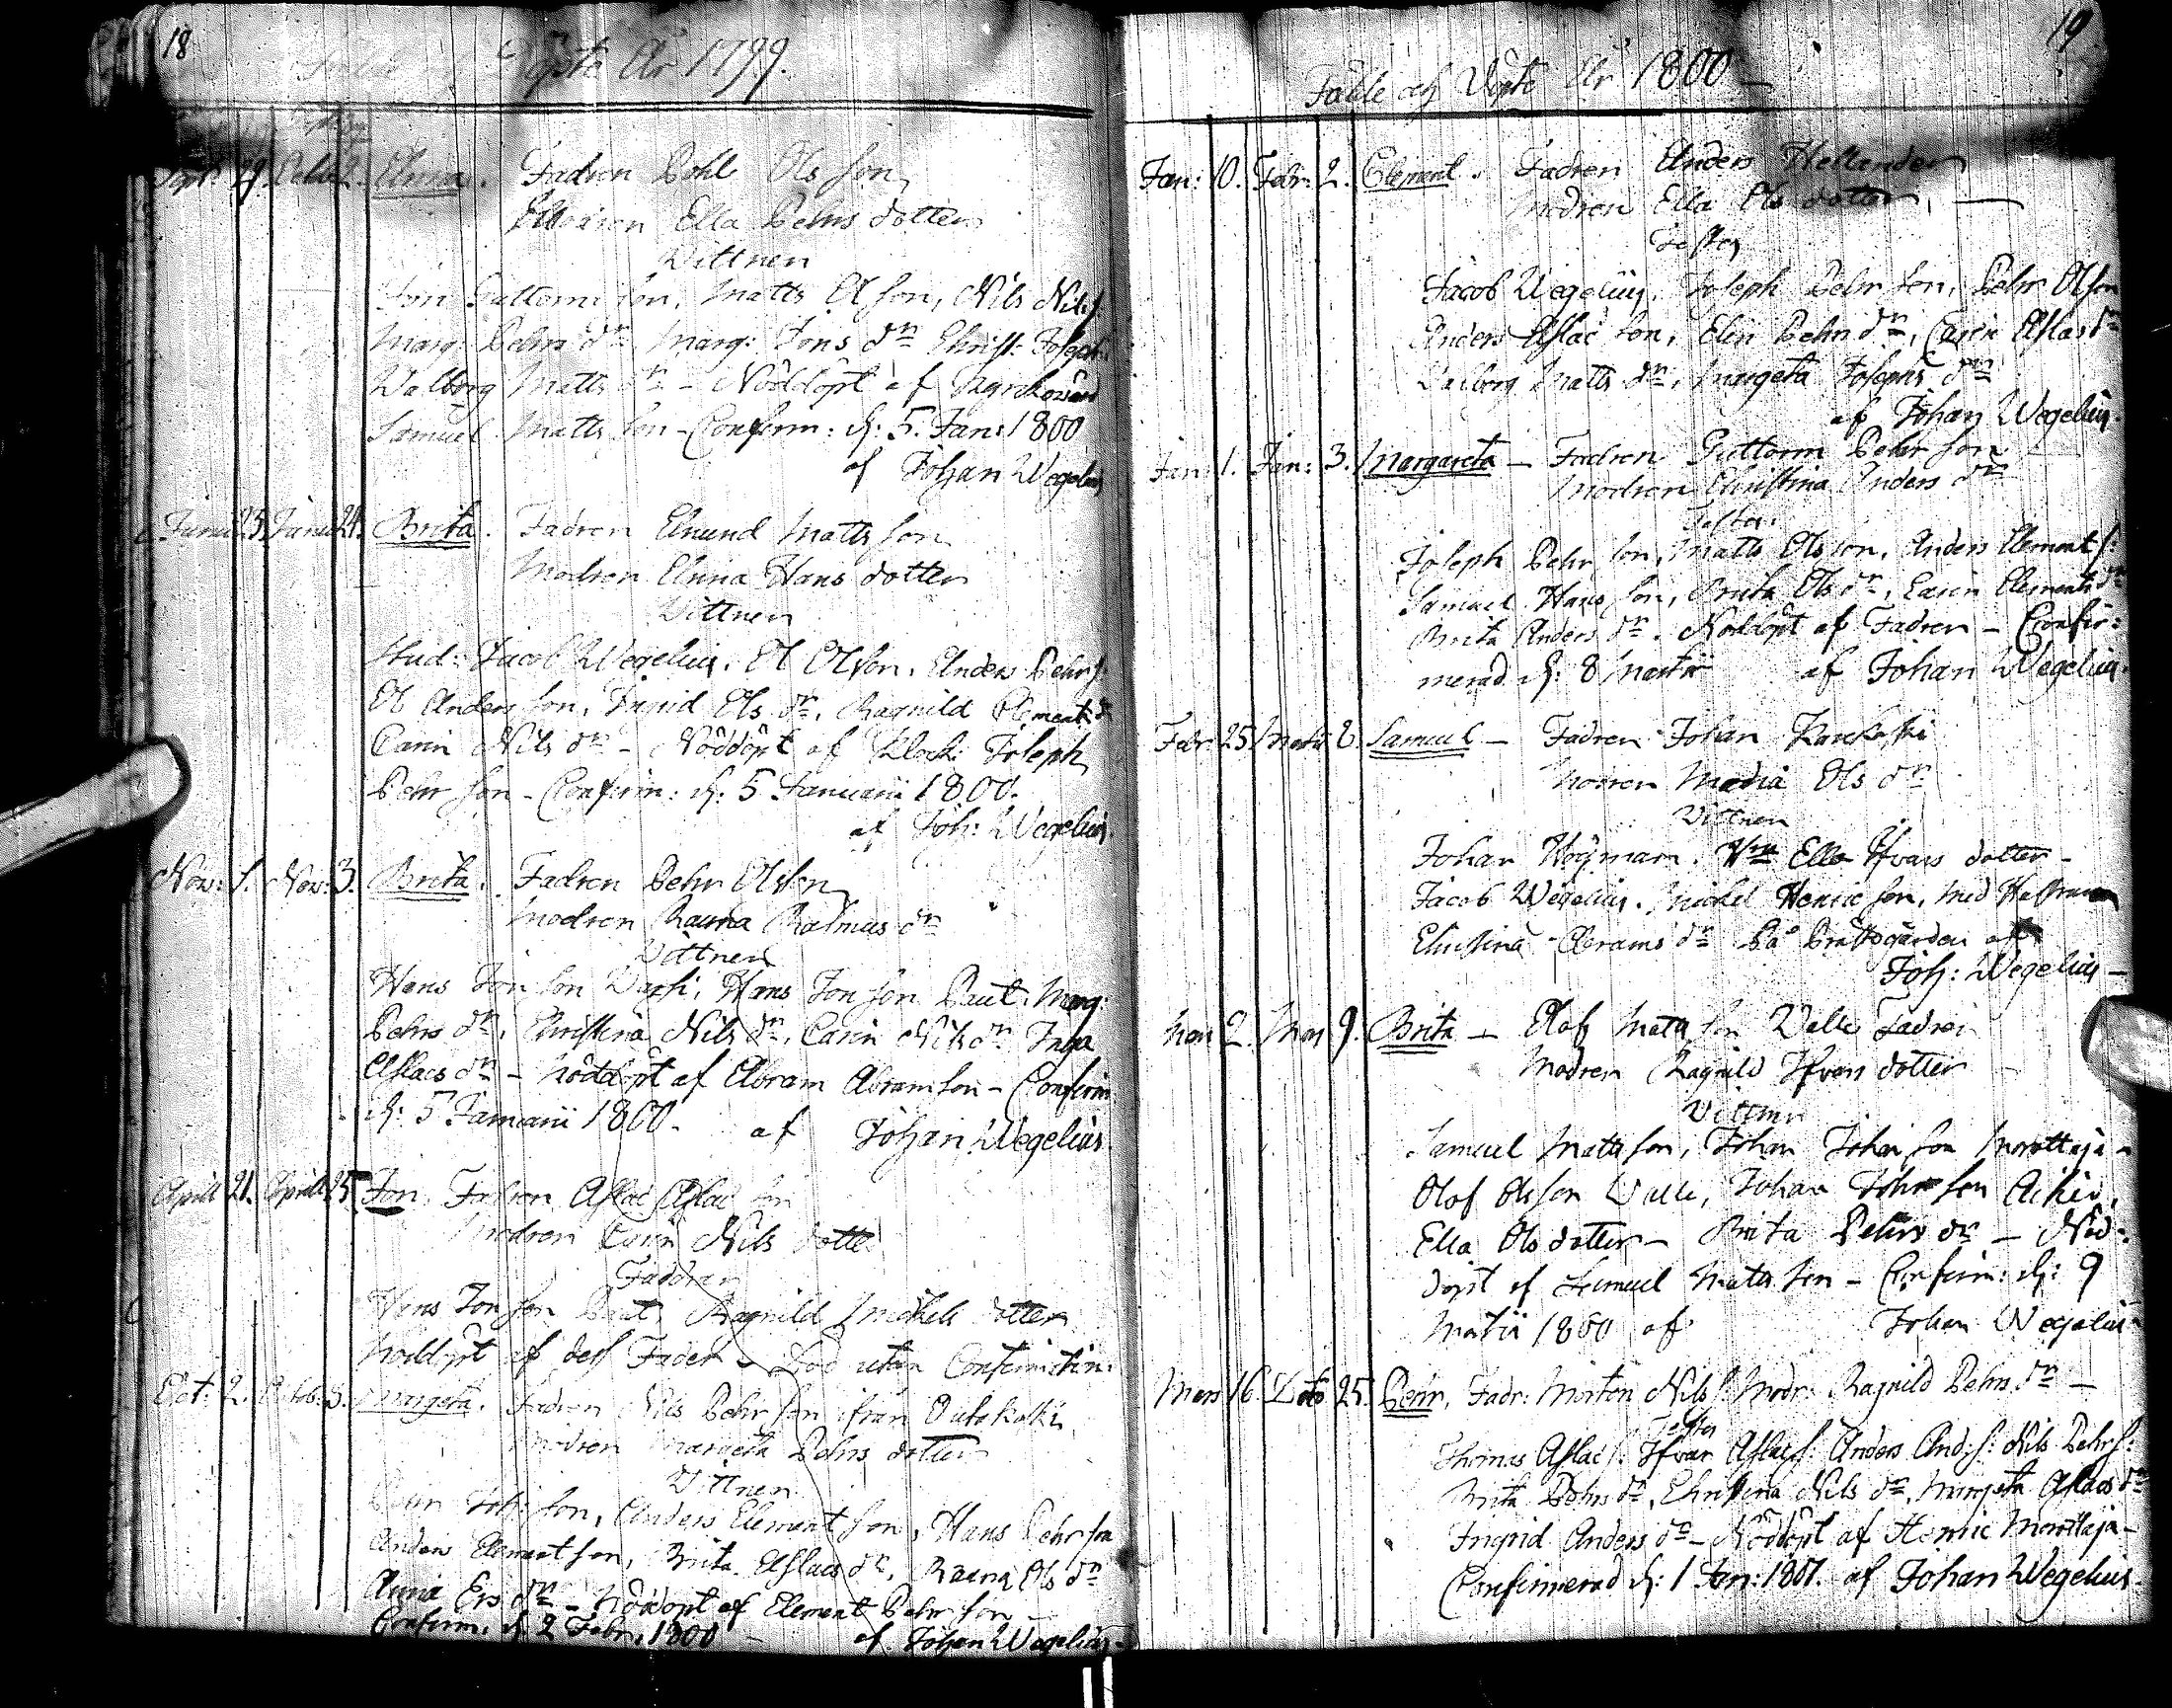 18
Döpte År 1799.
Sept: 29. 2. Anna. Fadren Pehl Ols son
Modren Ella Pehrs dotter
Vittnen
Jon Guttorm son, Matts Ol son, Nils Nils s.
Marg: Pehrs dr Marg: Jons dr Christ: Joseph:
Walborg Matts dr - Nöddöpt af
Samuel Matts son - Confirm: d: 5. Jan: 1800
af Johan Wegelius
Junii 23. Junii 24. Brita. Fadren Amund Matts son
Modren Anna Hans dotter
Vittnen
Stud: Jacob Wegelius, Ol Olson, Anders Pehr s.
Ol Anders son, Ingrid Ols dr, Ragnild Clements d
Carin Nils dr - Nöddöpt af Klock: Joseph
Pehr son - Confirm: d: 5 Januarii 1800.
af Joh: Wegelius
Nov: 1. Nov: 3. Brita. Fadren Pehr Olson
Modren Rauna Rasmus dr
Vittnen
Hans Jon son Warsi, Hans Jon son Paut, Marg:
Pehrs dr, Christina Nils dr, Carin Nils dr Inga
Aslacs dr - Nöddöpt af Abram Abramson - Confirm
d: 5 Januarii 1800. af Johan Wegelius.
April 21. April 25. Jon, Fadren Aslac Aslac son
Modren Carin Nils dotter
Faddrar
Hans Jon son Paut, Ragnild Michels dotter
Nöddöpt af dess Fader - Död utan Confirmation.
Oct: 2. Octob: 3. Margeta. Fadren Nils Pehr son ifrån Outakoski
Modren Margeta Pehrs dotter
Vittnen
Pehr Joh: son, Anders Clement son, Hans Pehr son
Anders Clement son, Brita Aslacs dr, Rauna Ols dr
Anna Ers dr - Nöddöpt af Clement Pehr son -
Confirm: d: 2 Febr. 1800 - af Johan Wegelius -
19
Födde och Döpte År 1800 -
Jan: 10. Febr: 2. Clement. Fadren Anders Hellander
Modren Ella Ols dotter, -
Testes
Jacob Wegelius, Joseph Pehr son, Pehr Olson
Anders Aslac son, Elin Pehrs dr, Carin Aslacs dr
Walborg Matts dr, Margeta Josephs dr
af Johan Wegelius.
Jan: 1. Jan: 3. Margareta - Fadren Guttorm Pehr son
Modren Christina Anders dr
Testes:
Joseph Pehr son, Matts Ols son, Anders Clement s:
Samuel Hans son, Brita Ols dr, Carin Clements dr
Brita Anders dr. Nöddöpt af Fadren - Confir:
merad d: 8 Martii af Johan Wegelius.
Febr: 25. Martii 2. Samuel - Fadren Johan
Modren Maria Ols dr
Vittnen
Johan Högman. Ella Ifvars dotter -
Jacob Wegelius. Michel Henric son, med Hustrun
Christina Abrams dr På Prästgården af
Joh: Wegelius -
Mars 2. Mars 9. Brita - Olof Matts son Walle Fadren
Modren Ragnild Ifvars dotter
Vittnen
Samuel Matts son, Johan Johan son Morottaja -
Olof Olsson Walle, Johan Johan son Aikio,
Ella Ols dotter - Brita Pehrs dr - Nöd:
döpt af Samuel Matts son - Confirm: d: 9
Martii 1800 af Johan Wegelius
Mars 16. Dito 25. Pehr, Fadr: Morten Nils s: Modr: Ragnild Pehrs dr -
Testes
Thomas Aslac s: Ifvar Aslacs s: Anders And: s: Nils Pehr s:
Brita Pehrs dr, Christina Nils dr, Margeta Aslacs dr
Ingrid Anders dr - Nöddöpt af Henric Morottaja -
Confirmerad d: 1 Jan: 1801. af Johan Wegelius.